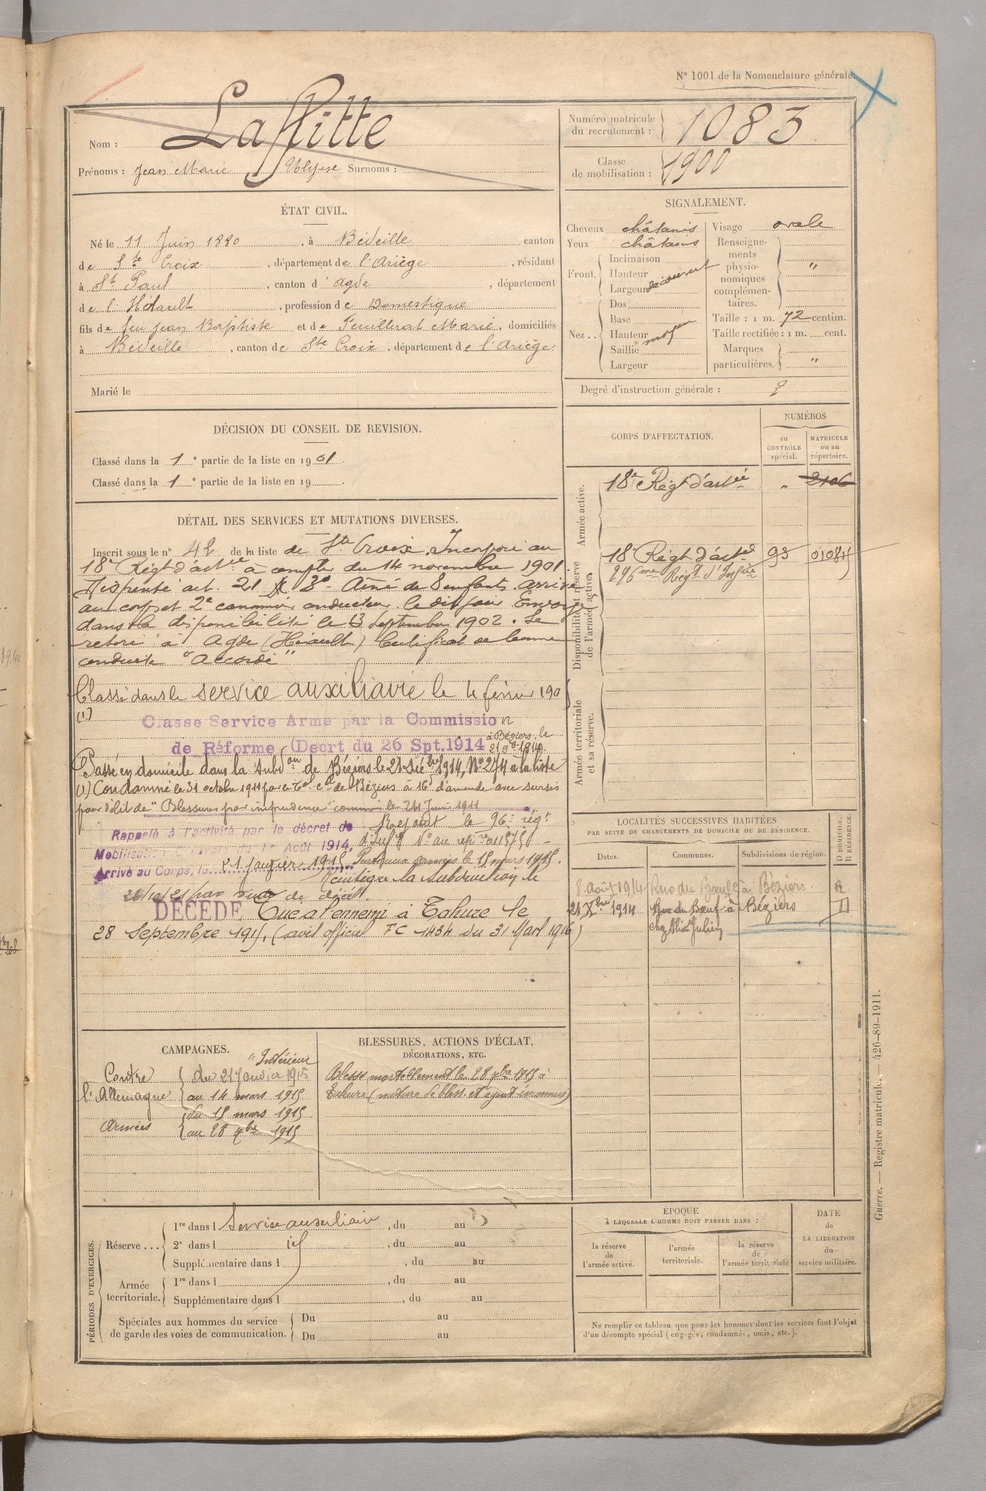 N° 1001 de la Nomenclature générale.
Nom : Laffitte
Prénoms : Jean Marie Ulysse Surnoms :
Numéro matricule du recrutement : 1083
Classe de mobilisation : 1900
ÉTAT CIVIL.
Né le 11 Juin 1880, à Bédeille canton
de Ste Croix, département de l'Ariège, résidant
à St Paul, canton d'Agde, département
de l'Hérault, profession de Domestique
fils de feu Jean Baptiste et de Feuillerat Marie, domiciliés
à Bédeille, canton de Ste Croix, département de l'Ariège
Marié le
SIGNALEMENT.
Cheveux châtains
Yeux châtains
Front. Inclinaison
Hauteur
Largeur découvert
Nez.. Dos
Base
Hauteur moyen
Saillie
Largeur
Visage ovale
Renseignements physionomiques complémentaires. "
Taille : 1 m. 72 centim.
Taille rectifiée : 1 m. cent.
Marques particulières. "
Degré d'instruction générale : 2
DÉCISION DU CONSEIL DE REVISION.
Classé dans la 1e partie de la liste en 1901
Classé dans la 1e partie de la liste en 19
CORPS D'AFFECTATION.
NUMÉROS
au CONTRÔLE spécial.
MATRICULE ou au répertoire.
Armée active.
18e Régt d'artie " 2106
Disponibilité et réserve de l'armée active.
18e Régt d'artie 93 01084
296me Régt d'Infie
Armée territoriale et sa réserve.
DÉTAIL DES SERVICES ET MUTATIONS DIVERSES.
Inscrit sous le n° 42 de la liste de Ste Croix. Incorporé au
18e Régt d'artie à compter du 14 novembre 1901.
Dispensé art. 21 3° Aîné de 8 enfants. Arrivé
au corps et 2e canonnier conducteur le dit jour. Envoyé
dans la disponibilité le 13 septembre 1902. Se
retire à Agde (Hérault) Certificat de bonne
conduite "Accordé"
Classé dans le service auxiliaire le 4 février 190
(1)
Classe Service Armé par la Commission
de Réforme (Decrt du 26 Spt. 1914 à Béziers, le
Passé en domicile dans la Subdon de Béziers le 24 Xbre 1914, N° 274 à la liste
(1) Condamné le 31 octobre 1911 par le de Béziers à 16f d'amende avec sursis
pour délit de "Blessures par imprudence" commis le 24 Juin 1911
Rappelé à l'activité par le décret de
Mobilisation Générale du 1er Août 1914,
Arrivé au Corps, le 21 janvier 1915
Report le 96e régt
d'Infie N° au repre 015750
Passé aux armées le 15 mars 1915.
28/10/21 par suite de décès.
DÉCÉDÉ Tué à l'ennemi à Tahure le
28 Septembre 1915, (avis officiel FC 1434 du 31 Mars 1916)
LOCALITÉS SUCCESSIVES HABITÉES
PAR SUITE DE CHANGEMENTS DE DOMICILE OU DE RÉSIDENCE.
Dates. Communes. Subdivisions de région. D DOMICILE. R RÉSIDENCE.
8 août 1914 Rue du Bœuf à Béziers. R
24 Xbre 1914 Rue du Bœuf à Béziers D
chez Julien
CAMPAGNES.
Contre l'Allemagne
"Intérieur
du 21 Janvier 1915
au 14 mars 1915
Armées
du 15 mars 1915
au 28 7bre 1915
BLESSURES, ACTIONS D'ÉCLAT, DÉCORATIONS, ETC.
Blessé mortellement le 28 7bre 1915 à
Tahure (nature de bless. et agent inconnus)
PÉRIODES D'EXERCICES.
Réserve... 1re dans l Service auxiliaire, du au
2e dans l id, du au
Supplémentaire dans l, du au
Armée territoriale. 1re dans l, du au
Supplémentaire dans l, du au
Spéciales aux hommes du service de garde des voies de communication. Du au
Du au
ÉPOQUE
À LAQUELLE L'HOMME DOIT PASSER DANS :
la réserve de l'armée active.
l'armée territoriale.
la réserve de l'armée territoriale
DATE de LA LIBÉRATION du service militaire.
Ne remplir ce tableau que pour les hommes dont les services font l'objet
d'un décompte spécial (engagés, condamnés, omis, etc.).
Guerre. — Registre matricule. — 426-89-1911.